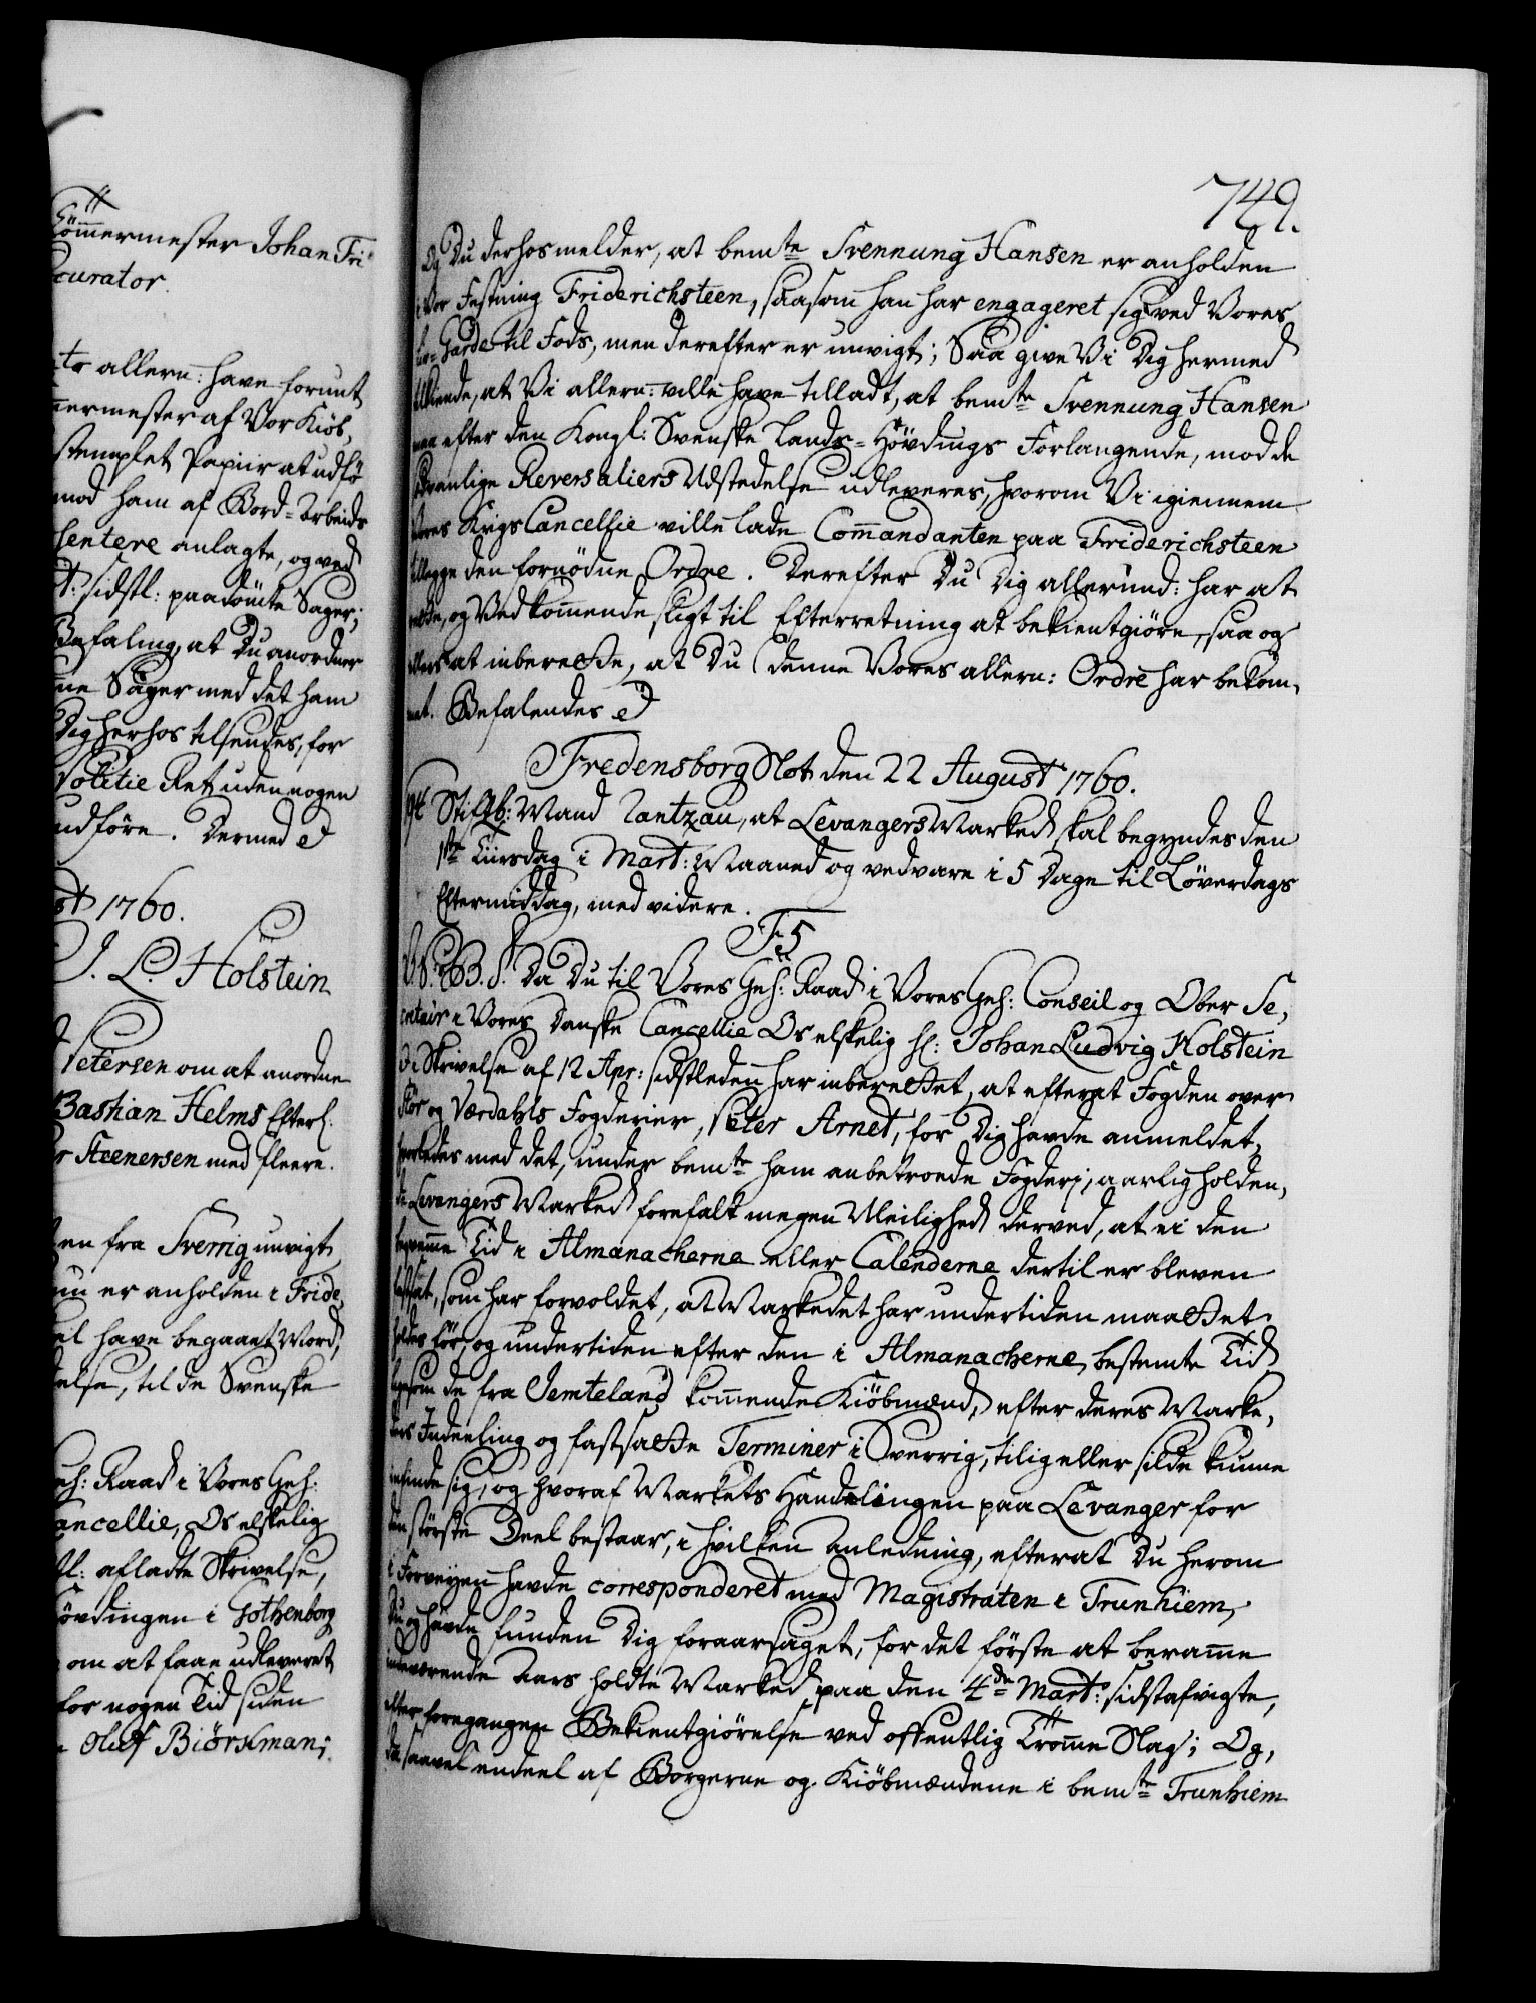 Tømmermester Johan Fri=
curator.
allern: have forunt
mermester af Vor Kiöb,
stemplet Papiir at udfö
mod ham af Bord=Arbeids
sentere anlagte, og ved
sidstl: paadömte Sager;
Befaling, at Du anordner
ne Sager med det ham
Dig herhos tilsendes, for
Politie Ret uden nogen
udföre. Dermed
1760.
J. L. Holstein
Petersen om at anordne
Bastian Helms Efterl.
Steenersen med fleere.
en fra Sverrig unvigt
nu er anholden i Fride
have begaaet Mord,
delse, til de Svenske
Geh: Raad i Vores Geh:
Cancellie, Os elskelig
afladte Skrivelse,
hövdingen i Gothenborg
om at faae udleveret
for nogen Tid siden
Oluf Biörsmans
749.
Og Du derhos melder, at bemte Svennung Hansen er anholden
i Vor Festning Friderichsteen, saasom han har engageret sig ved Vores
Liv=Garde til Fods, men derefter er unvigt; Saa give Vi Dig hermed
tilkiende, at Vi allern: ville have tilladt, at bemte Svennung Hansen
maa efter den Kongl: Svenske Lands=Hövdings Forlangende, mod de
sædvanlige Reversaliers Udstedelse udleveres, hvorom Vi igiennem
Vores Krigs Cancellie ville lade Commandanten paa Friderichsteen
tillegge den fornödne Ordre. Derefter Du Dig allerund: har at
rette, og Vedkommende sligt til Efterretning at bekientgiöre, saa og
at inberette, at Du denne Vores allern: Ordre har bekom,
met. Befalendes
Fredensborg Slot den 22 August 1760.
Stiftb:Mand Rantzau, at Levangers Marked skal begyndes den
1ste Tiirsdag i Mart: Maaned og vedvare i 5 Dage til Löverdags
Eftermiddag, med videre.
F5
V. S. G. B. S. Da Du til Vores Geh: Raad i Vores Geh: Conseil og Ober Se,
cretair i Vores Danske Cancellie Os elskelig Hr: Johan Ludvig Holstein
i Skrivelse af 12 Apr: sidstleden har inberettet, at efterat Fogden over
Stör og Værdahls Fogderier, Peter Arnet, for Dig havde anmeldet,
hvorledes med det, under bemte ham anbetroede Fogderi, aarlig holden,
de Levangers Marked forefalt megen Uleilighed derved, at ei den
beqvemme Tid i Almanacherne eller Calenderne dertil er bleven
fastsat, som har forvoldet, at Markedet har undertiden maattet
holdes för, og undertiden efter den i Almanacherne bestemte Tid
ligesom de fra Jemteland kommende Kiöbmænd, efter deres Marke,
ders Indeeling og fastsatte Terminer i Sverrig, tilig eller silde kunne
infinde sig, og hvoraf Markets Handelingen paa Levanger for
den störste Deel bestaar, i hvilken Anledning, efterat Du herom
i Forveyen havde corresponderet med Magistraten i Trunhiem,
Du og havde funden Dig foraarsaget, for det förste at beramme
indeværende Aars holdte Marked paa den 4de Mart: sidstafvigte,
efter foregangen Bekientgiörelse ved offentlig Tromme Slag; Og,
da saavel endeel af Borgerne og Kiöbmændene i bemte Trunhiem